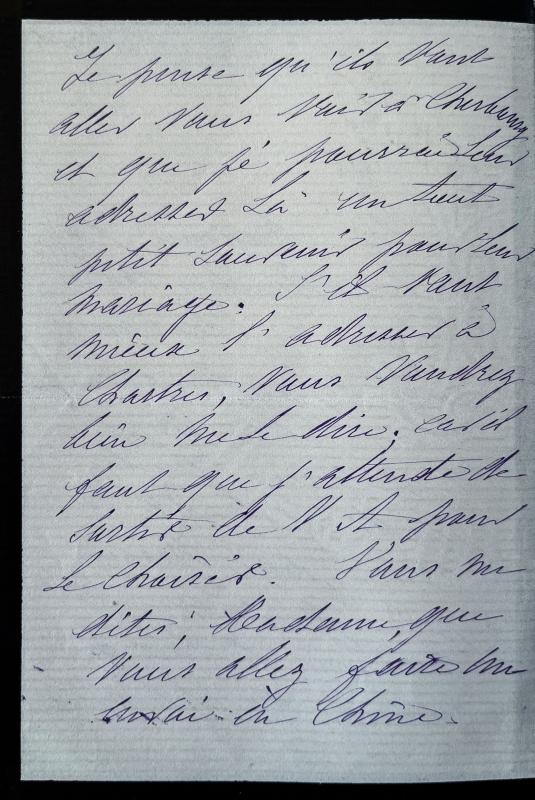 Je pense qu'ils vont
aller vous voir à Cherbourg
et que je pourrai leur
adresser là un tout
petit souvenir pour leur
mariage. S'il vaut
mieux l'adresser à
Chartres, vous voudrez
bien me le dire, car il
faut que j'attende de
sortir de N A pour
le choisir. Vous me
dites, Madame, que
vous allez faire un
envoi en Chine.